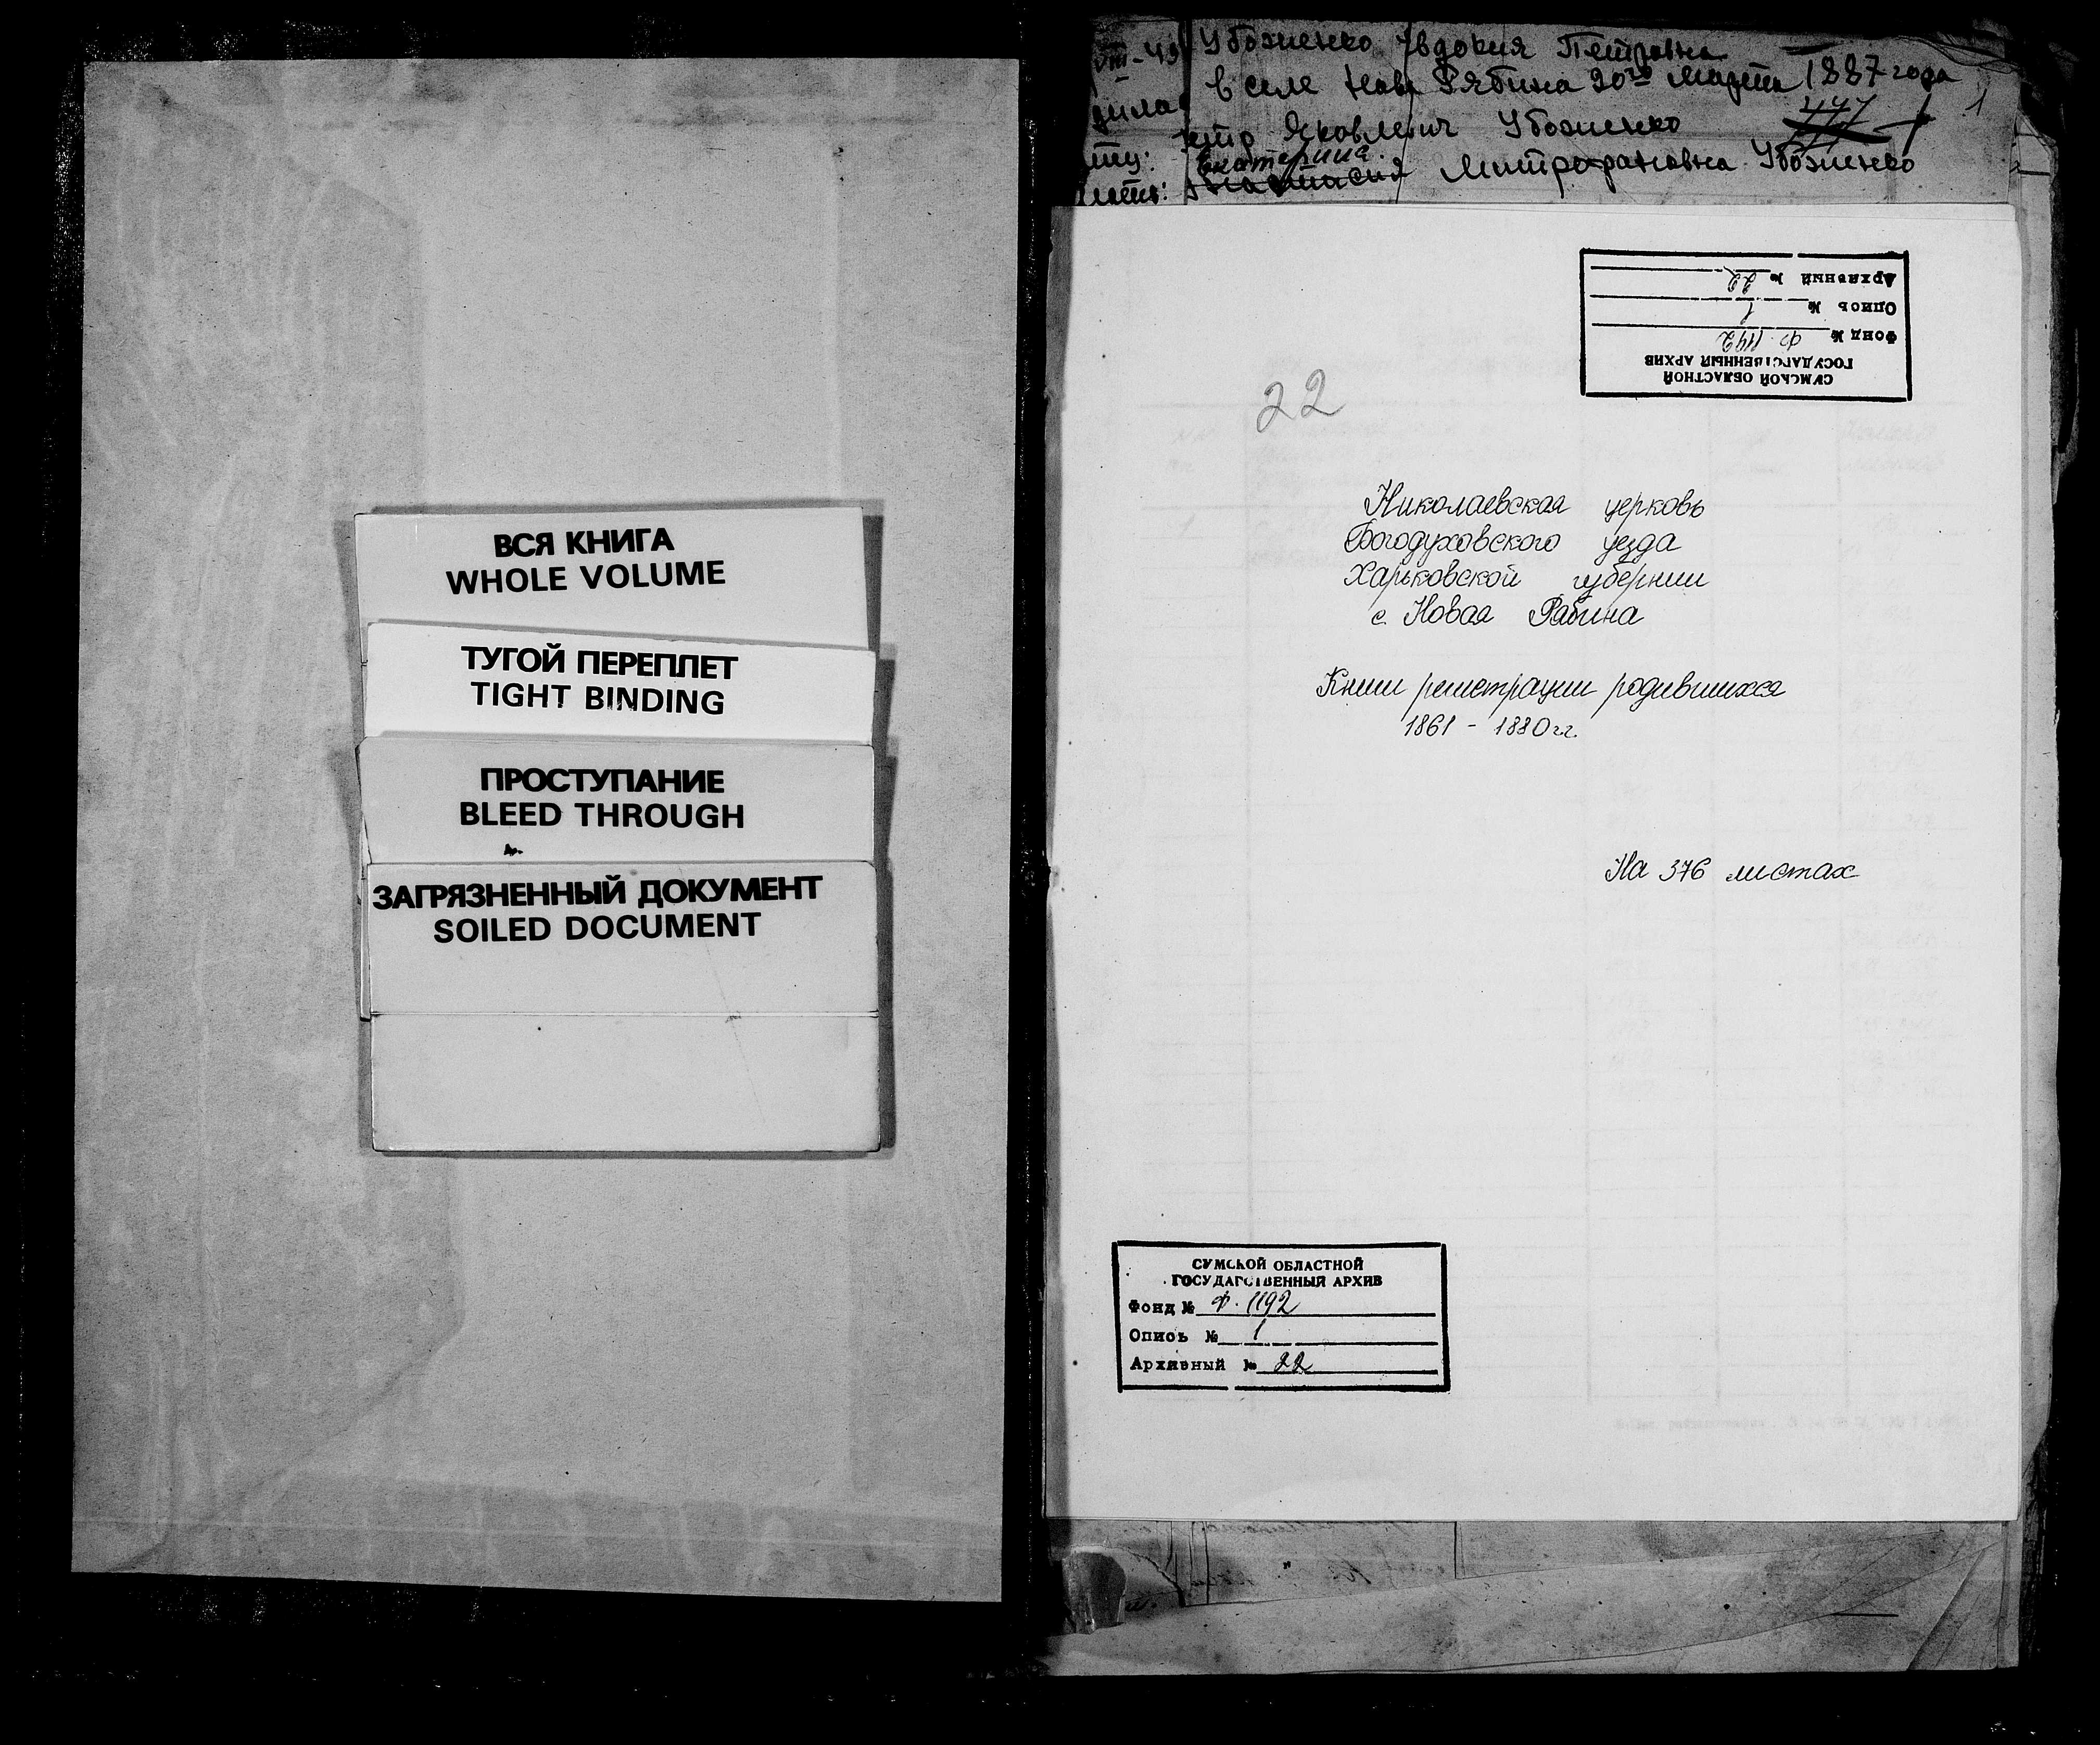 ВСЯ КНИГА
WHOLE VOLUME
ТУГОЙ ПЕРЕПЛЕТ
TIGHT BINDING
ПРОСТУПАНИЕ
BLEED THROUGH
ЗАГРЯЗНЕННЫЙ ДОКУМЕНТ
SOILED DOCUMENT
VIII-49 Убоженко Евдокия Петровна
в селе Нов Рябина 20го Марта 1887 года
1
Петр Яковлевич Убоженко
Екатерина
Митрофановна Убоженко
СУМСКОЙ ОБЛАСТНОЙ
ГОСУДАРСТВЕННЫЙ АРХИВ
Фонд № Ф. 1192
Опись № 1
Архивный № 22
22
Николаевская церковь
Богодуховского уезда
Харьковской губернии
с. Новая Рабина
Книги регистрации родившихся
1861 - 1880 гг.
На 376 листах
СУМСКОЙ ОБЛАСТНОЙ
ГОСУДАРСТВЕННЫЙ АРХИВ
Фонд № Ф. 1192
Опись № 1
Архивный № 22